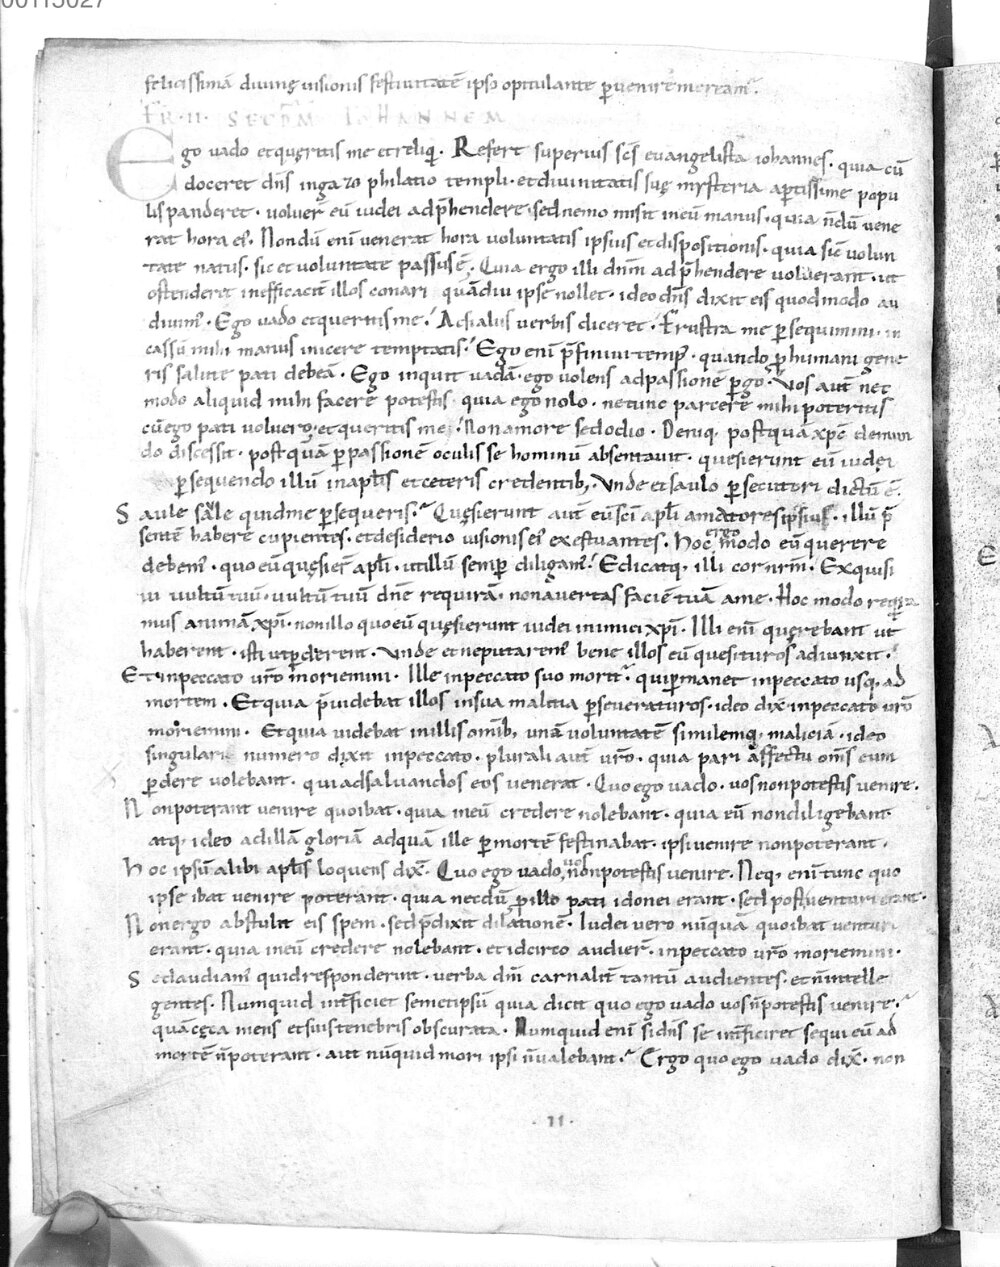 00113027
felicissimā divinę visionis festivitatē ipso opitulante ꝑvenire meream̃.
FR·II· SECD̄M IOHANNEM
Ego vado et queritis me et reliq̃. Refert superius sc̄s evangelista iohannes· quia cū
doceret dn̄s in gazophilatio templi· et divinitatis suę mysteria aꝑtissime popu
lis panderet· voluer̃ eū iudei adp̄hendere· sed nemo misit in eū manus· quia nōdū vene
rat hora ei᷒. Nondū eni venerat hora voluntatis ipsius et dispositionis· quia sic̄ volun
tate natus· sic et voluntate passus ē. Quia ergo illi dn̄m adp̄hendere voluerant· ut
ostenderet inefficacit̄ illos conari quādiu ipse nollet· ideo dn̄s dixit eis quod modo au
divim᷒. Ego vado et queritis me. Ac si alus verbis diceret. Frustra me ꝑsequimini· in
cassū mihi manus inicere temptatis. Ego enī p̄finivi temp᷒· quando ꝓ humani gene
ris salute pati debeā. Ego inquit vadā· ego volens ad passionē ꝑgo. Vos aut̄ nec
modo aliquid mihi facere potestis· quia ego nolo· nec tunc parcere mihi poteritis
cū ego pati voluero· et queritis me. Non amore sed odio. Deniq; postquā xp̄c de mun
do discessit· postquā ꝑ passionē oculis se hominū absentavit· quesierunt eū iudei
ꝑsequendo illū in apl̄is et ceteris credentib; Unde et saulo ꝑsecutori dictū ē.
Saule saule quid me ꝑsequeris. Quesierunt aut̄ eū sc̄i apl̄i amatores ipsius· illū p̄
sentē habere cupientes· et desiderio visionis ei᷒ exestuantes. Hoc ergo modo eū querere
debem᷒· quo eū quęsier̄ apl̄i· ut illū semꝑ diligam᷒. Et dicat q̇; illi cor nr̄m. Exquisi
vi vultū tuū· vultū tuū dn̄e requirā· non avertas faciē tuā a me. Hoc modo requira
mus animā xp̄i· non illo quo eū quęsierunt iudei inimici xp̄i. Illi enī querebant ut
haberent· isti ut ꝑderent. Unde et ne putarem᷒ bene illos eū quesituros adiunxit.
Et in peccato vr̄o moriemini. Ille in peccato suo morit᷒· qui ꝑmanet in peccato usq; ad
mortem. Et quia p̄videbat illos in sua malitia ꝑseveraturos· ideo dix̄ in peccato vr̄o
moriemini. Et quia videbat in illis omīb; unā voluntatē similemq; maliciā· ideo
singulari numero dixit in peccato· plurali aut̄ vr̄o· quia pari affectu om̄s eum
ꝑdere volebant· qui ad salvandos eos venerat. Quo ego vado· vos non potestis venire.
Non poterant venire quo ibat· quia in eū credere nolebant· quia eū non diligebant.
atq; ideo ad illā gloriā ad quā ille ꝑ mortē festinabat· ipsi venire non poterant.
Hoc ipsū alibi apl̄is loquens dix̄. Quo ego vado vos non potestis venire. Neq; enī tunc quo
ipse ibat venire poterant· quia necdū ꝓ illo pati idonei erant· sed post venturi erant.
Non ergo abstulit eis spem· sed p̄dixit dilationē. Iudei vero nūquā quo ibat venturi
erant· quia in eū credere nolebant· et idcirco audier̄· in peccato vr̄o moriemini.
Sed audiam᷒ quid responderint· verba dn̄i carnalit̄ tantū audientes· et n̄ intelle
gentes. Numquid int̄ficiet semetipsū quia dicit quo ego vado vos n̄ potestis venire.
quā cęca mens et suis tenebris obscurata. Numquid enī si dn̄s se int̄ficeret sequi eū ad
mortē n̄ poterant· aut nūquid mori ipsi n̄ valebant. Ergo quo ego vado dix̄· non
·11·